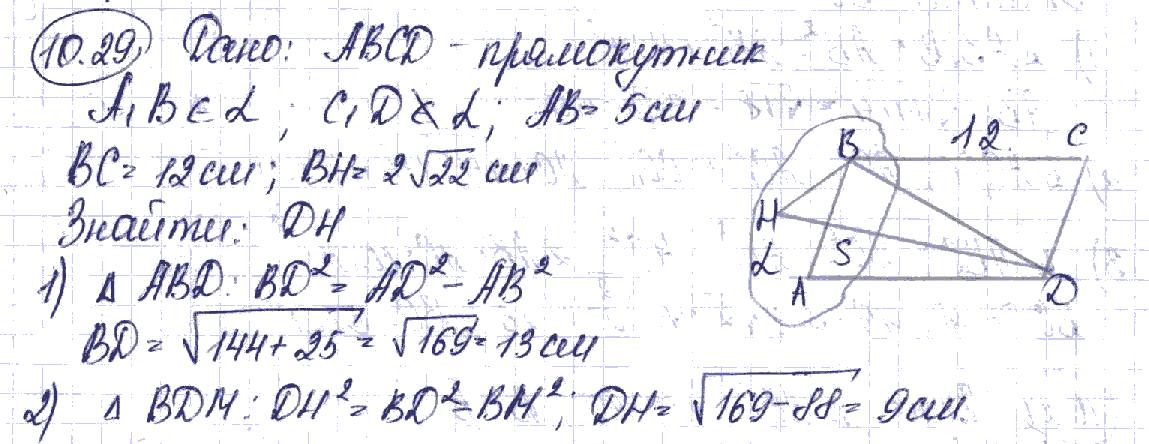 10.29. Дано: ABCD - прямокутник
A, B ∈ α ; C, D ∉ α; AB = 5 см
BC = 12 см; BH = 2√22 см
Знайти: DH
1) Δ ABD: BD² = AD² - AB²
BD = √144+25 = √169 = 13 см
2) Δ BDH: DH² = BD² - BH²; DH = √169-88 = 9 см
B 12 C
H
α 5
A D